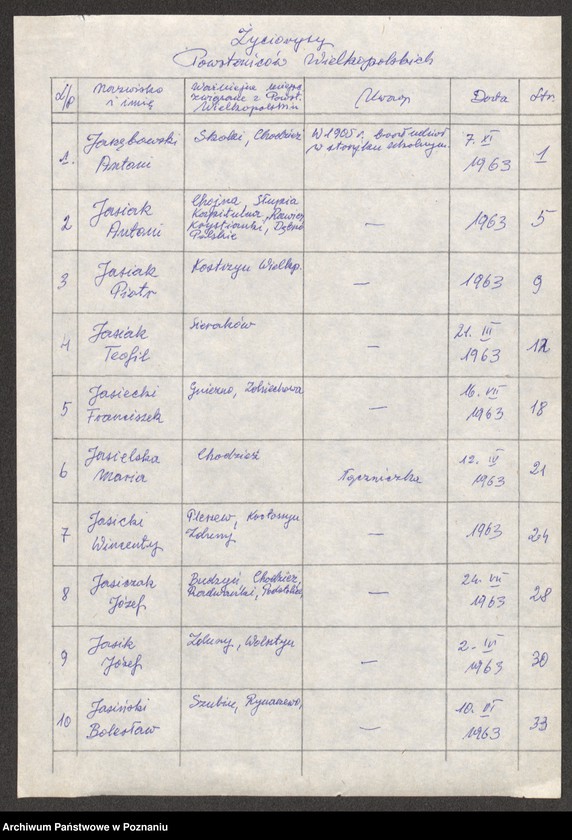 Życiorysy
Powstańców Wielkopolskich
L/p
Nazwisko
i imię
Ważniejsze miejsca
związane z Powst.
Wielkopolskim
Uwagi
Data
Str.
1.
Antoni
Skoki, Chodzież
W 1905 r. brał udział
w strajku szkolnym.
7. XI
1963
1
2
Jasiak
Antoni
Chojna, Słupia
Kapitulna, Rawicz,
Dębno
Polskie
—
1963
5
3
Jasiak
Piotr
Kostrzyn Wielkp.
—
1963
9
4
Jasiak
Teofil
Sieraków
—
21. III
1963
12
5
Jasiecki
Franciszek
Gniezno, Zdziechowa
—
16. VII
1963
18
6
Jasielska
Maria
Chodzież
Łączniczka
12. IV
1963
21
7
Jasicki
Wincenty
Pleszew, Krotoszyn
Zduny
—
1963
24
8
Jasiczak
Józef
Budzyń, Chodzież,
Radwanki,
—
24. VII
1963
28
9
Jasik
Józef
Zduny, Wolsztyn
—
2. IV
1963
30
10
Jasiński
Bolesław
Szubin, Rynarzewo,
—
10.
1963
33
Archiwum Państwowe w Poznaniu